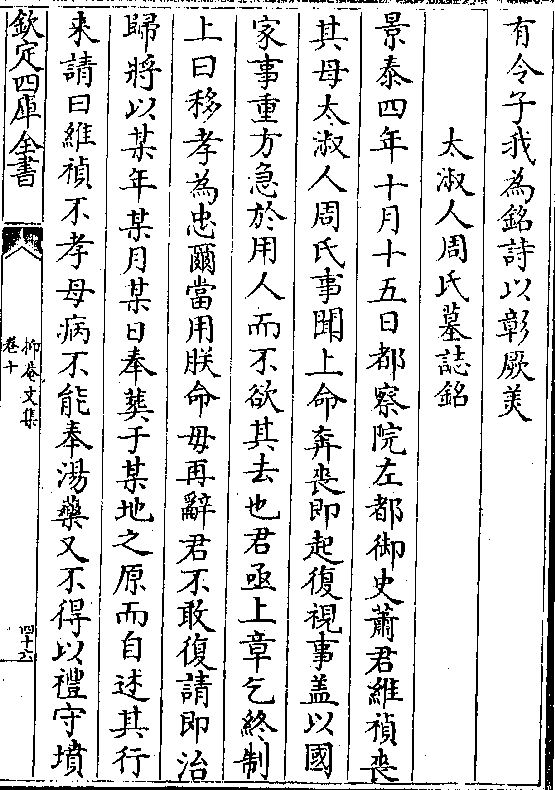 有令子我為銘詩以彰厥美
太淑人周氏墓誌銘
景泰四年十月十五日都察院左都御史蕭君維禎喪
其母太淑人周氏事聞上命奔喪即起復視事盖以國
家事重方急於用人而不欲其去也君亟上章乞終制
上曰移孝為忠爾當用朕命毋再辭君不敢復請即治
歸將以某年某月某日奉葬于某地之原而自述其行
来請曰維禎不孝母病不能奉湯藥又不得以禮守墳
欽定四庫全書
抑菴文集
卷十
四十六